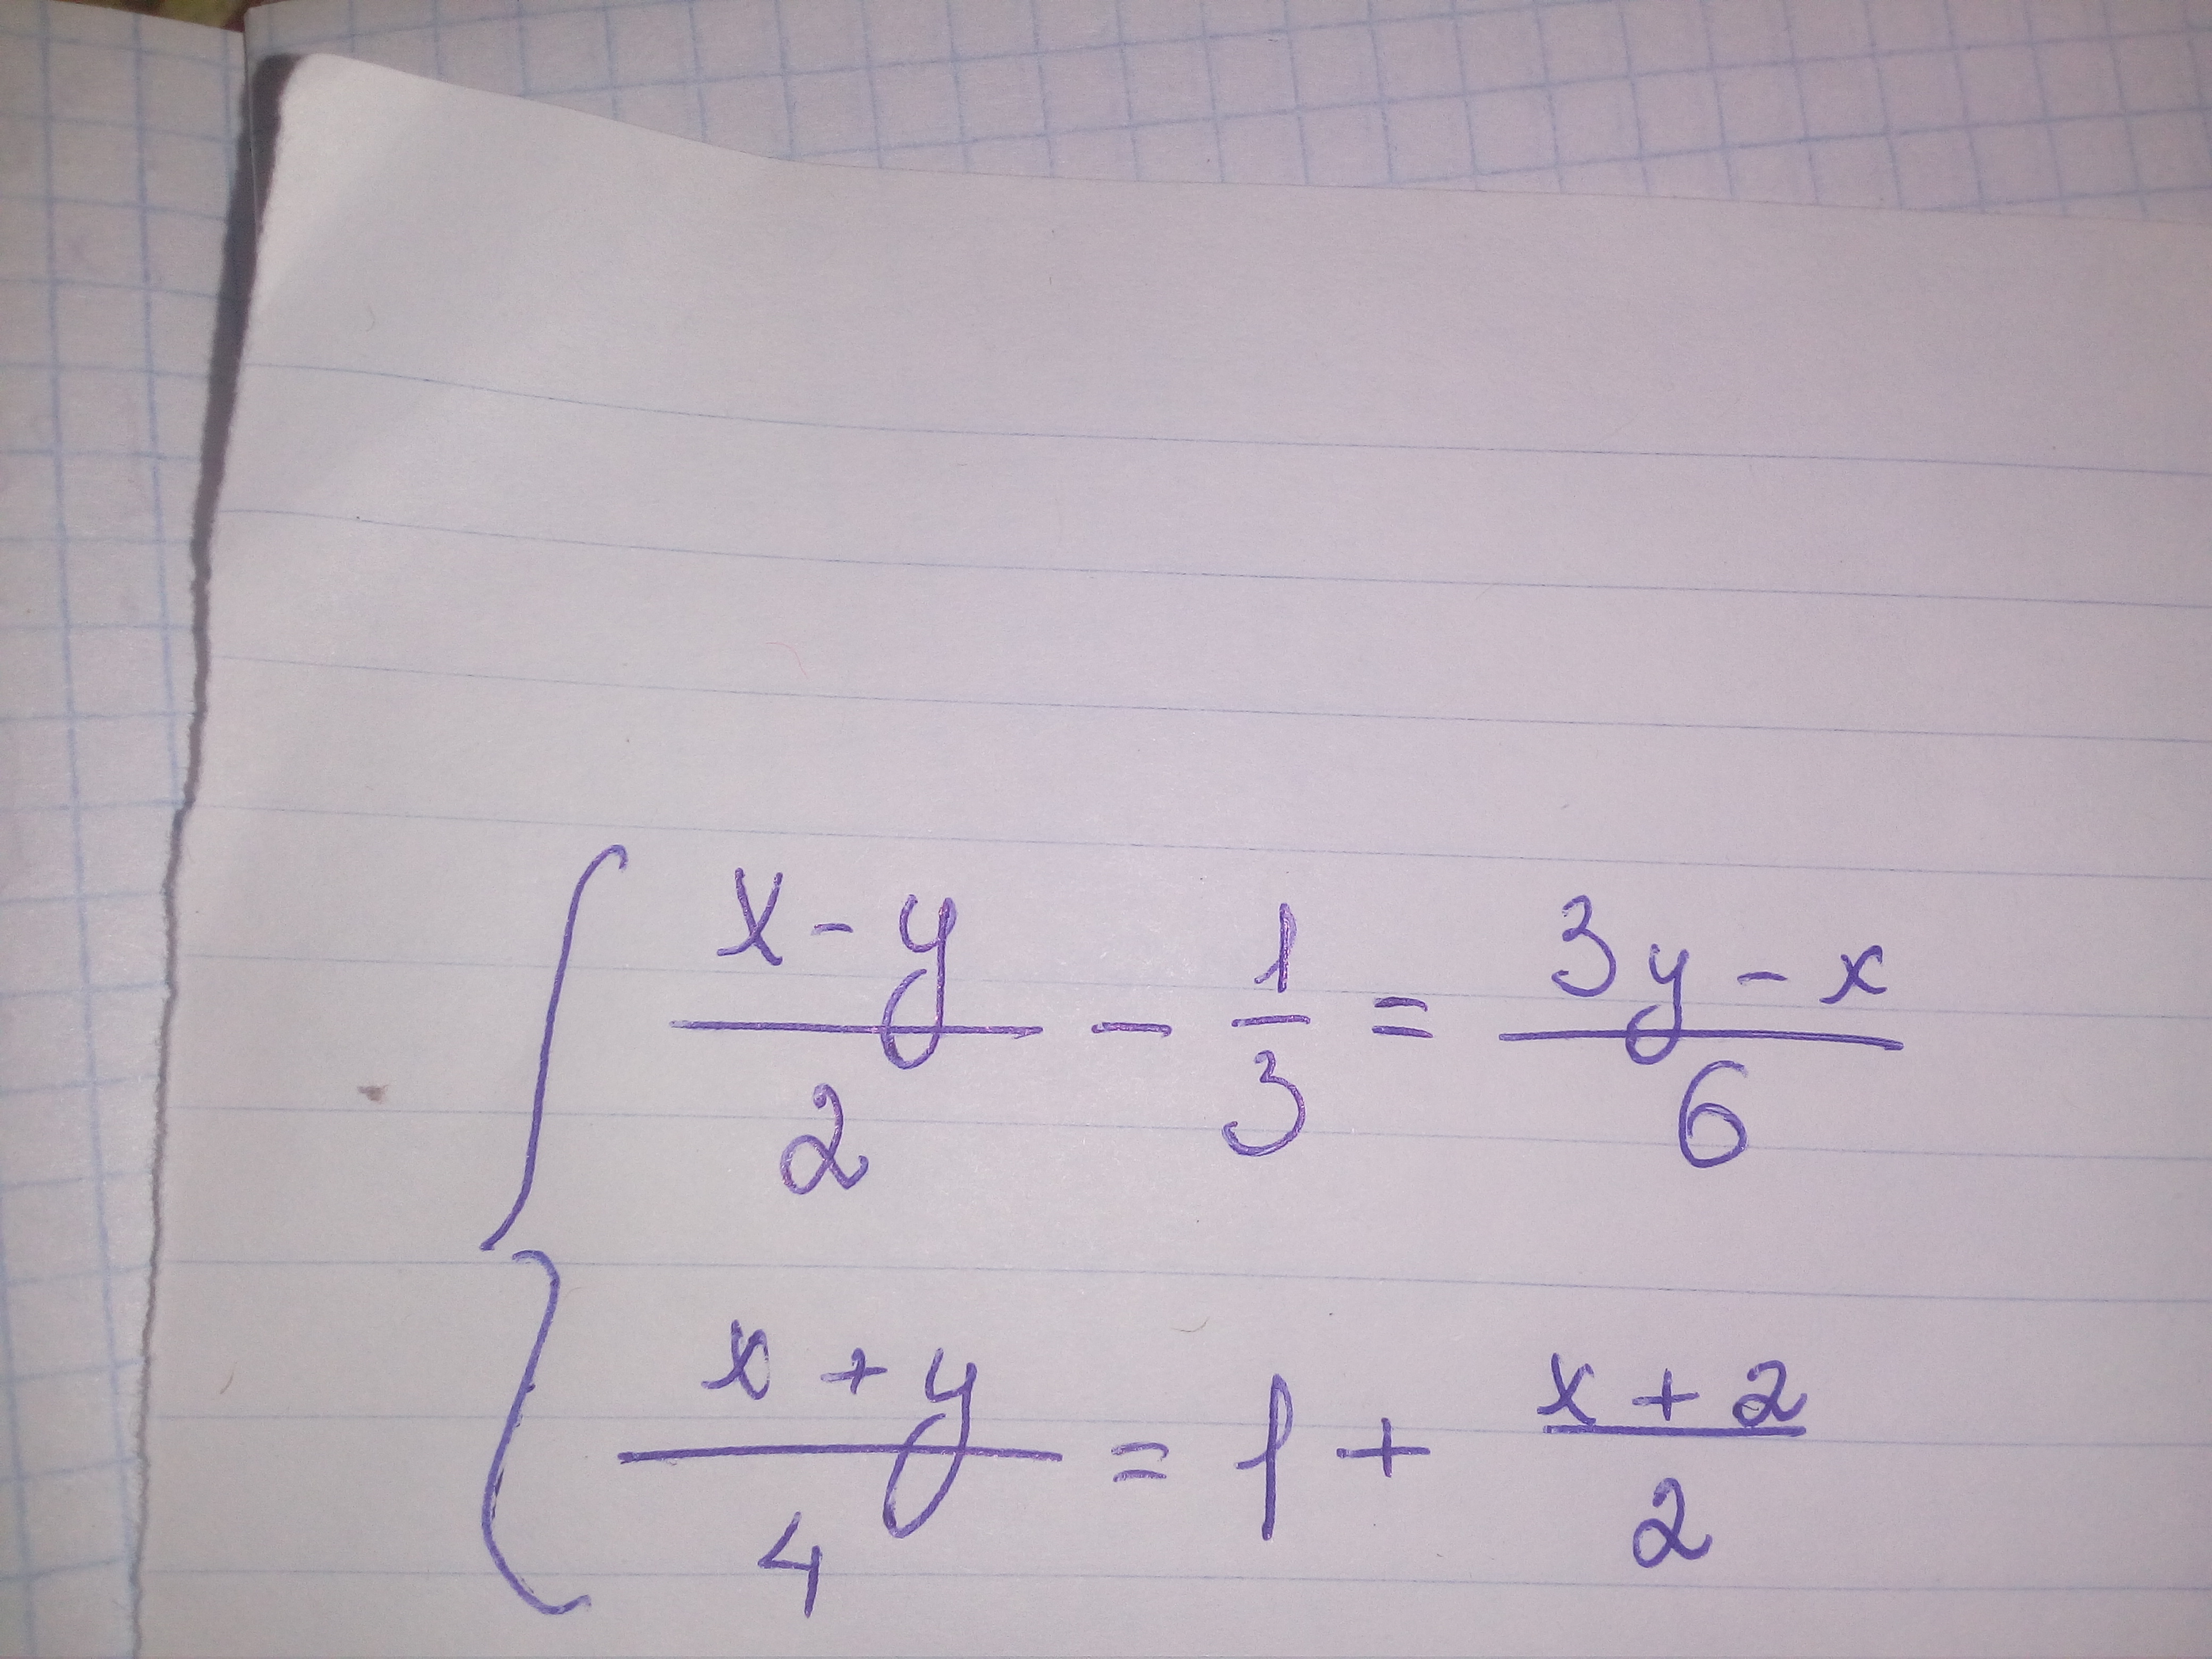 { x-y/2 - 1/3 = 3y-x/6
x+y/4 = 1 + x+2/2